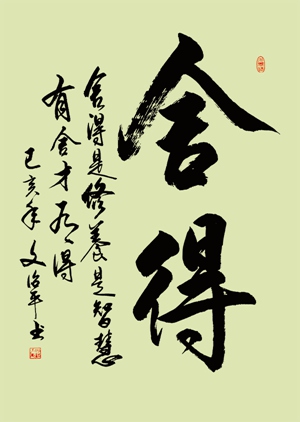 舍得
舍得是修養是智慧
有舍才有得
己亥年文治平书